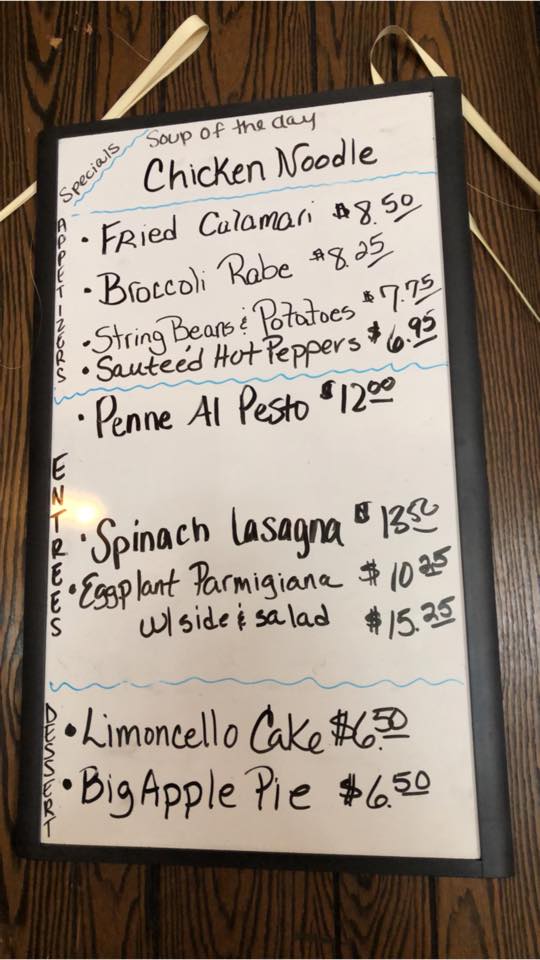 Specials
Soup of the day
Chicken Noodle
APPETIZORS
• Fried Calamari $8.50
• Broccoli Rabe $8.25
• String Beans & Potatoes $7.75
• Sauteéd Hot Peppers $6.95
ENTREES
• Penne Al Pesto $12.00
• Spinach Lasagna $13.50
• Eggplant Parmigiana $10.25
w/ side & salad $15.25
DESSERT
• Limoncello Cake $6.50
• Big Apple Pie $6.50